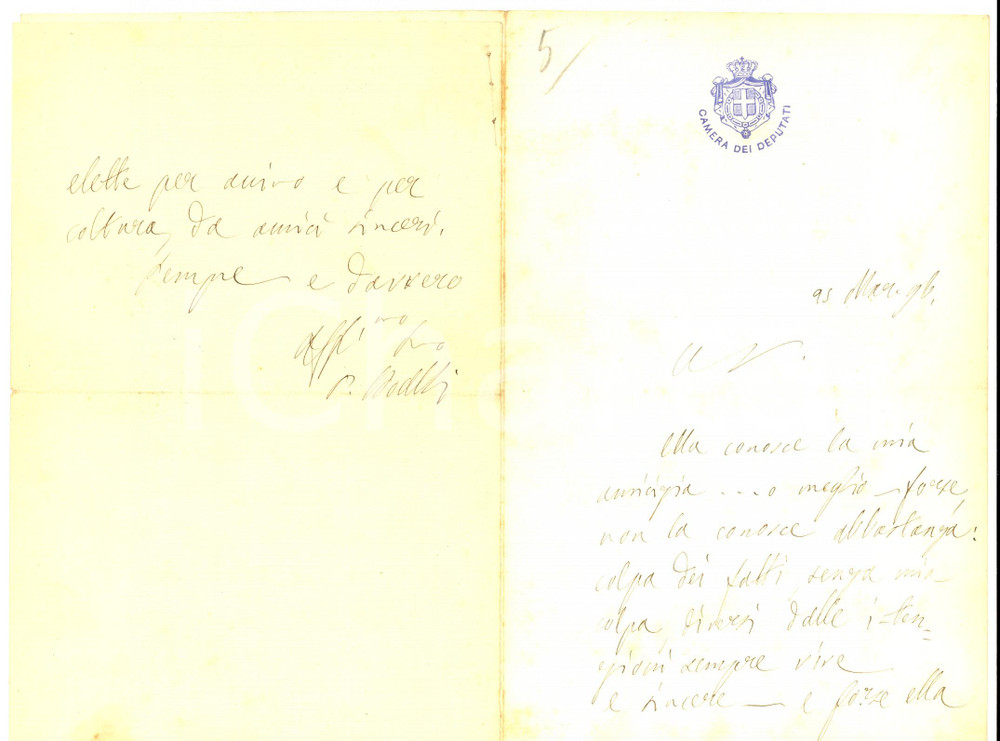 5/
CAMERA DEI DEPUTATI
Mar. 96.
Ella conosce la mia
amicizia ... o meglio forse,
non la conosce abbastanza:
colpa dei fatti, senza mia
colpa, diversi dalle inten-
zioni sempre vive
e sincere — e forse ella
elette per animo e per
coltura, da amici sinceri.
Sempre e davvero
Aff.mo Suo